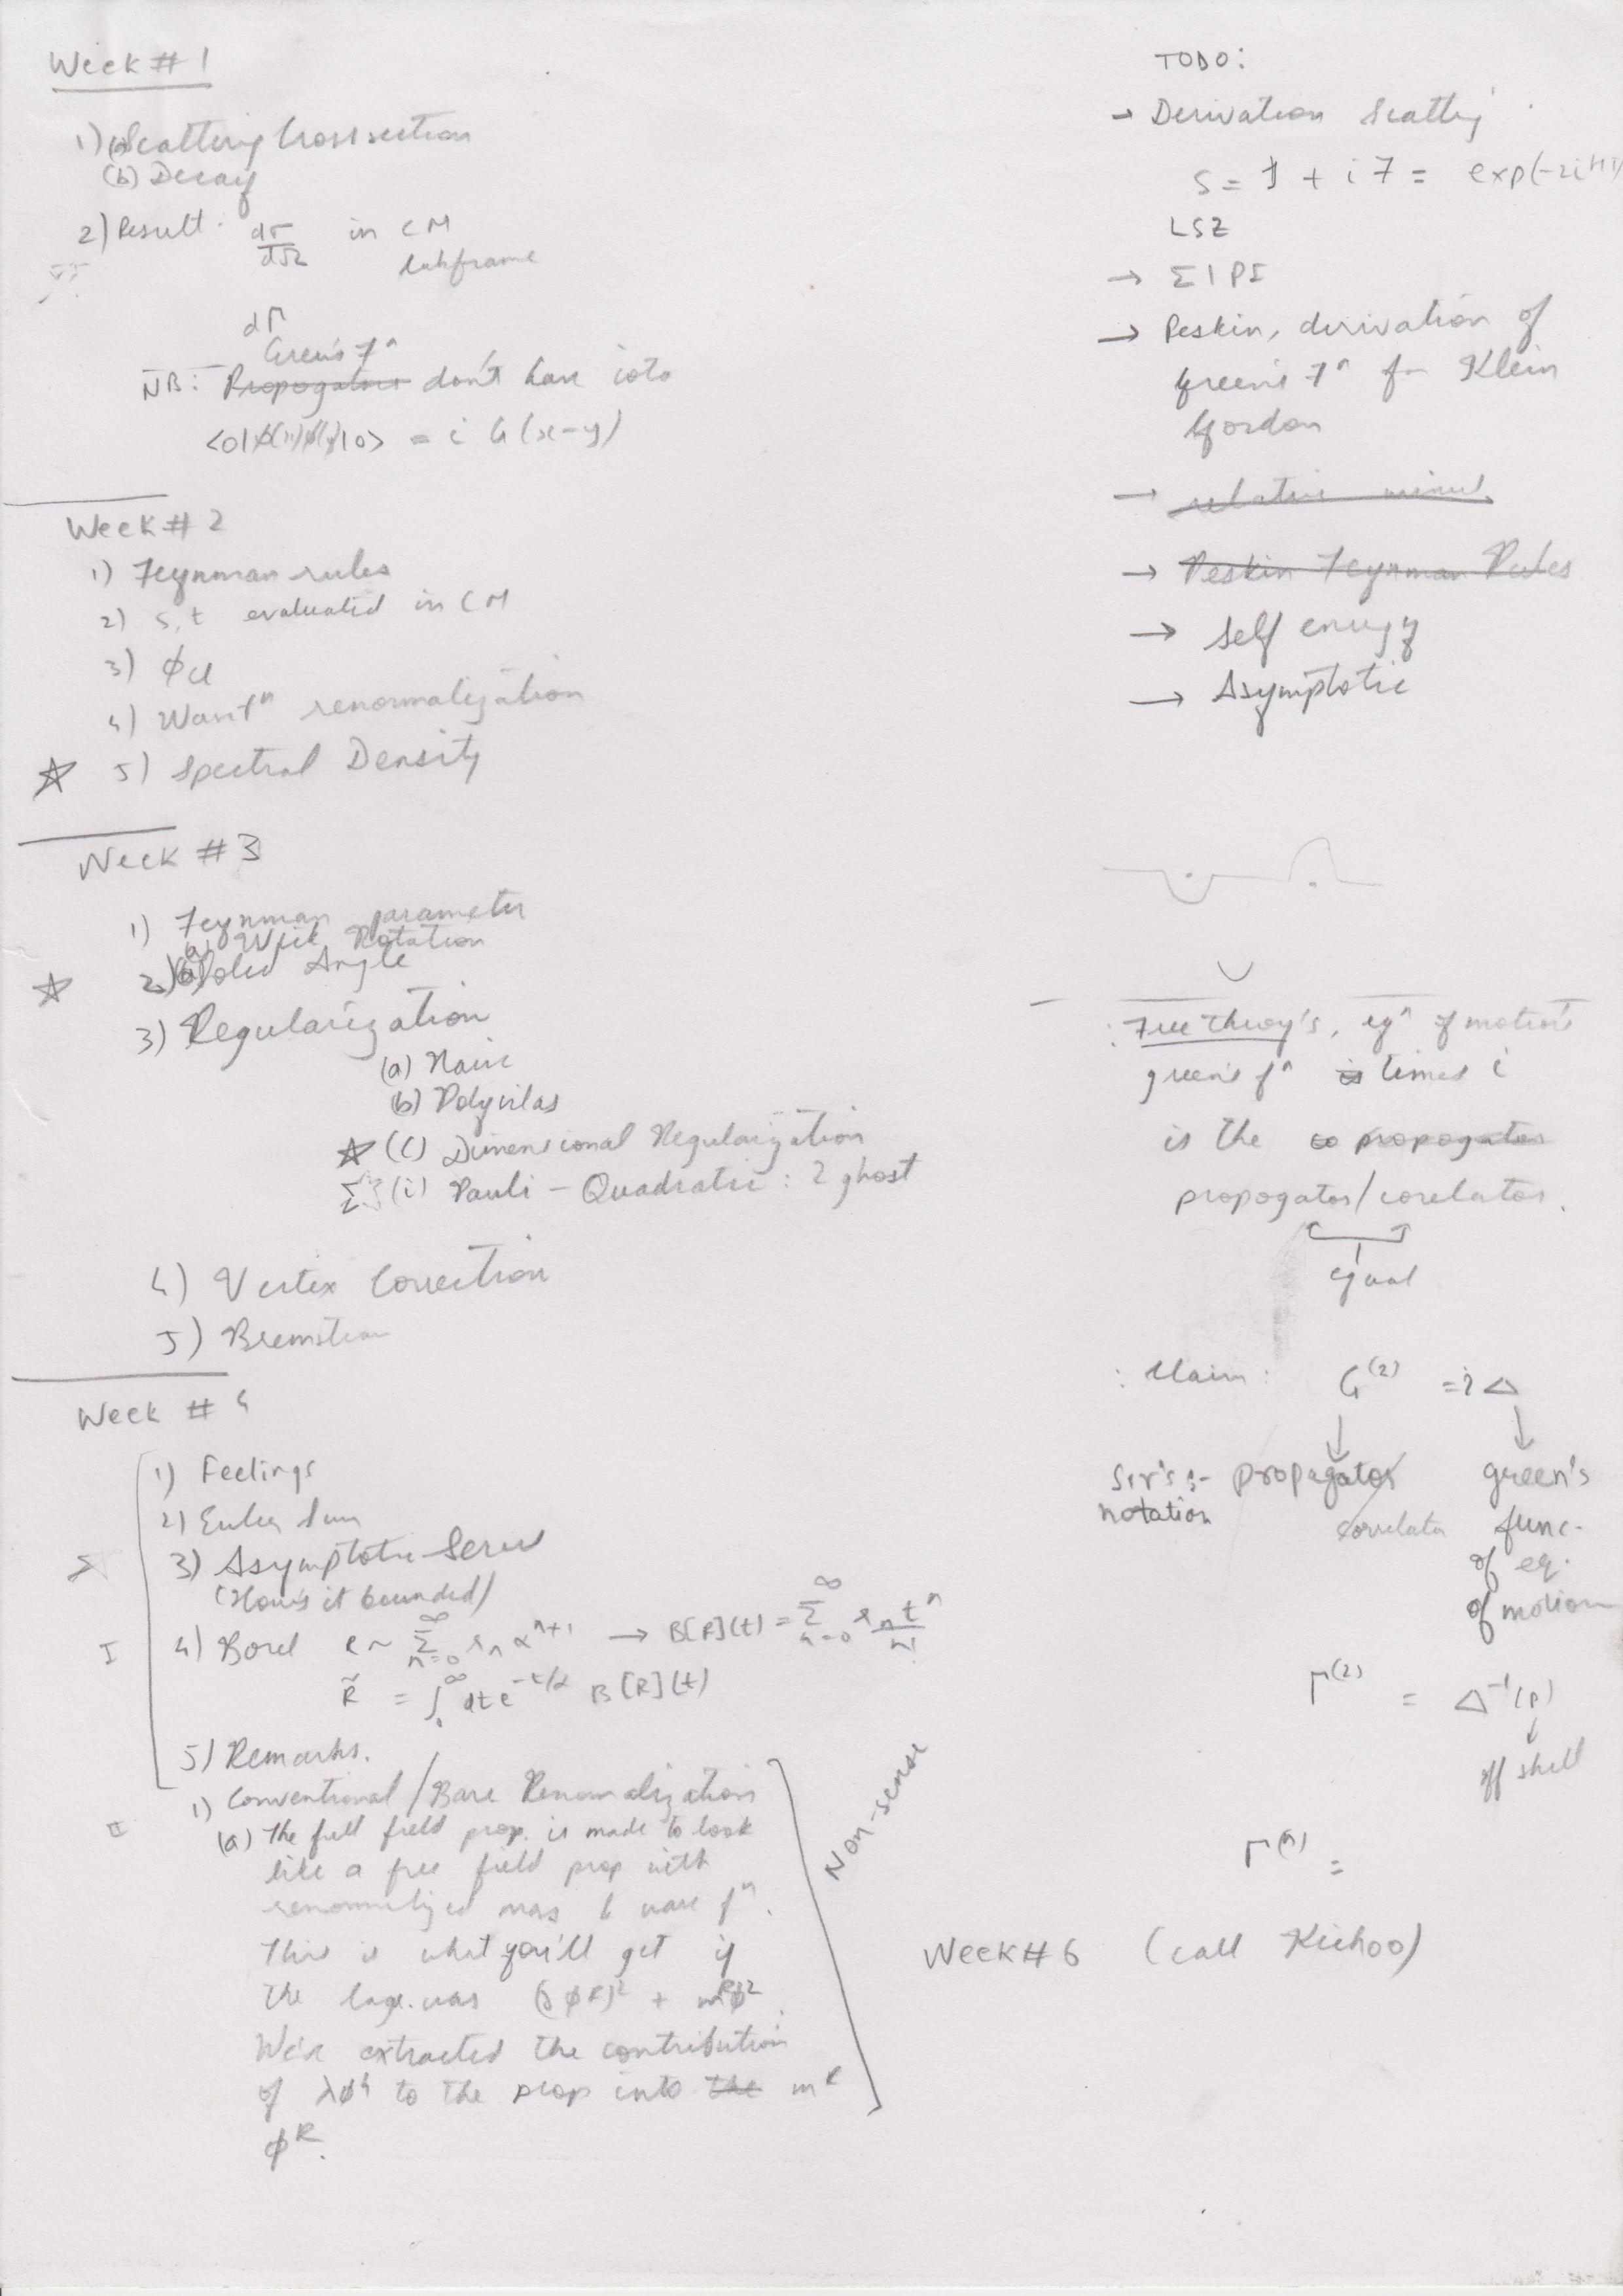 Week # 1
1) (a) Scattering Cross section
(b) Decay
2) Result: dσ/dΩ in CM
labframe
dΓ
Green's fⁿ
NB: Propogators don't have iota
<0|ϕ(x)ϕ(y)|0> = i G(x-y)
Week # 2
1) Feynman rules
2) s,t evaluated in CM
3) ϕcl
4) Wavefⁿ renormalization
☆ 5) Spectral Density
Week # 3
1) Feynman parameter
(a) Wick Rotation
☆ 2) (b) Solid Angle
3) Regularization
(a) Naive
(b)
☆ (c) Dimensional Regularization
(i) Pauli - Quadratic : 2 ghost
4) Vertex Correction
5)
Week # 4
I
1) Feelings
2) Euler Sum
3) Asymptotic Series
(How's it bounded)
4) Borel R ~ Σ_{n=0}^∞ r_n α^{n+1} → B[R](t) = Σ_{n=0}^∞ r_n t^n/n!
R̃ = ∫_0^∞ dt e^{-t/α} B[R](t)
5) Remarks.
II
1) Conventional / Bare Renormalization
(a) The full field prop. is made to look
like a free field prop with
renormalized mass & wave fⁿ.
This is what you'll get if
the lage. was (∂ϕ^R)² + m^Rϕ².
We've extracted the contribution
of λϕ⁴ to the prop into the m^R
ϕ^R.
Non-sense
TODO:
→ Derivation Scatting
S = 1 + i T = exp(-2iHt)
LSZ
→ Σ 1PI
→ Peskin, derivation of
Green's fⁿ for Klein
Gordon
→ relative minus
→ Peskin Feynman Rules
→ Self energy
→ Asymptotic
: Free Theory's, eqⁿ of motion's
green's fⁿ is times i
is the propogator
propogator/corelator.
equal
: Claim: G⁽²⁾ = i Δ
Sir's :- propagator green's
notation correlator func.
of eq.
of motion
Γ⁽²⁾ = Δ⁻¹(p)
off shell
Γ⁽ⁿ⁾ =
Week # 6 (call Kichoo)